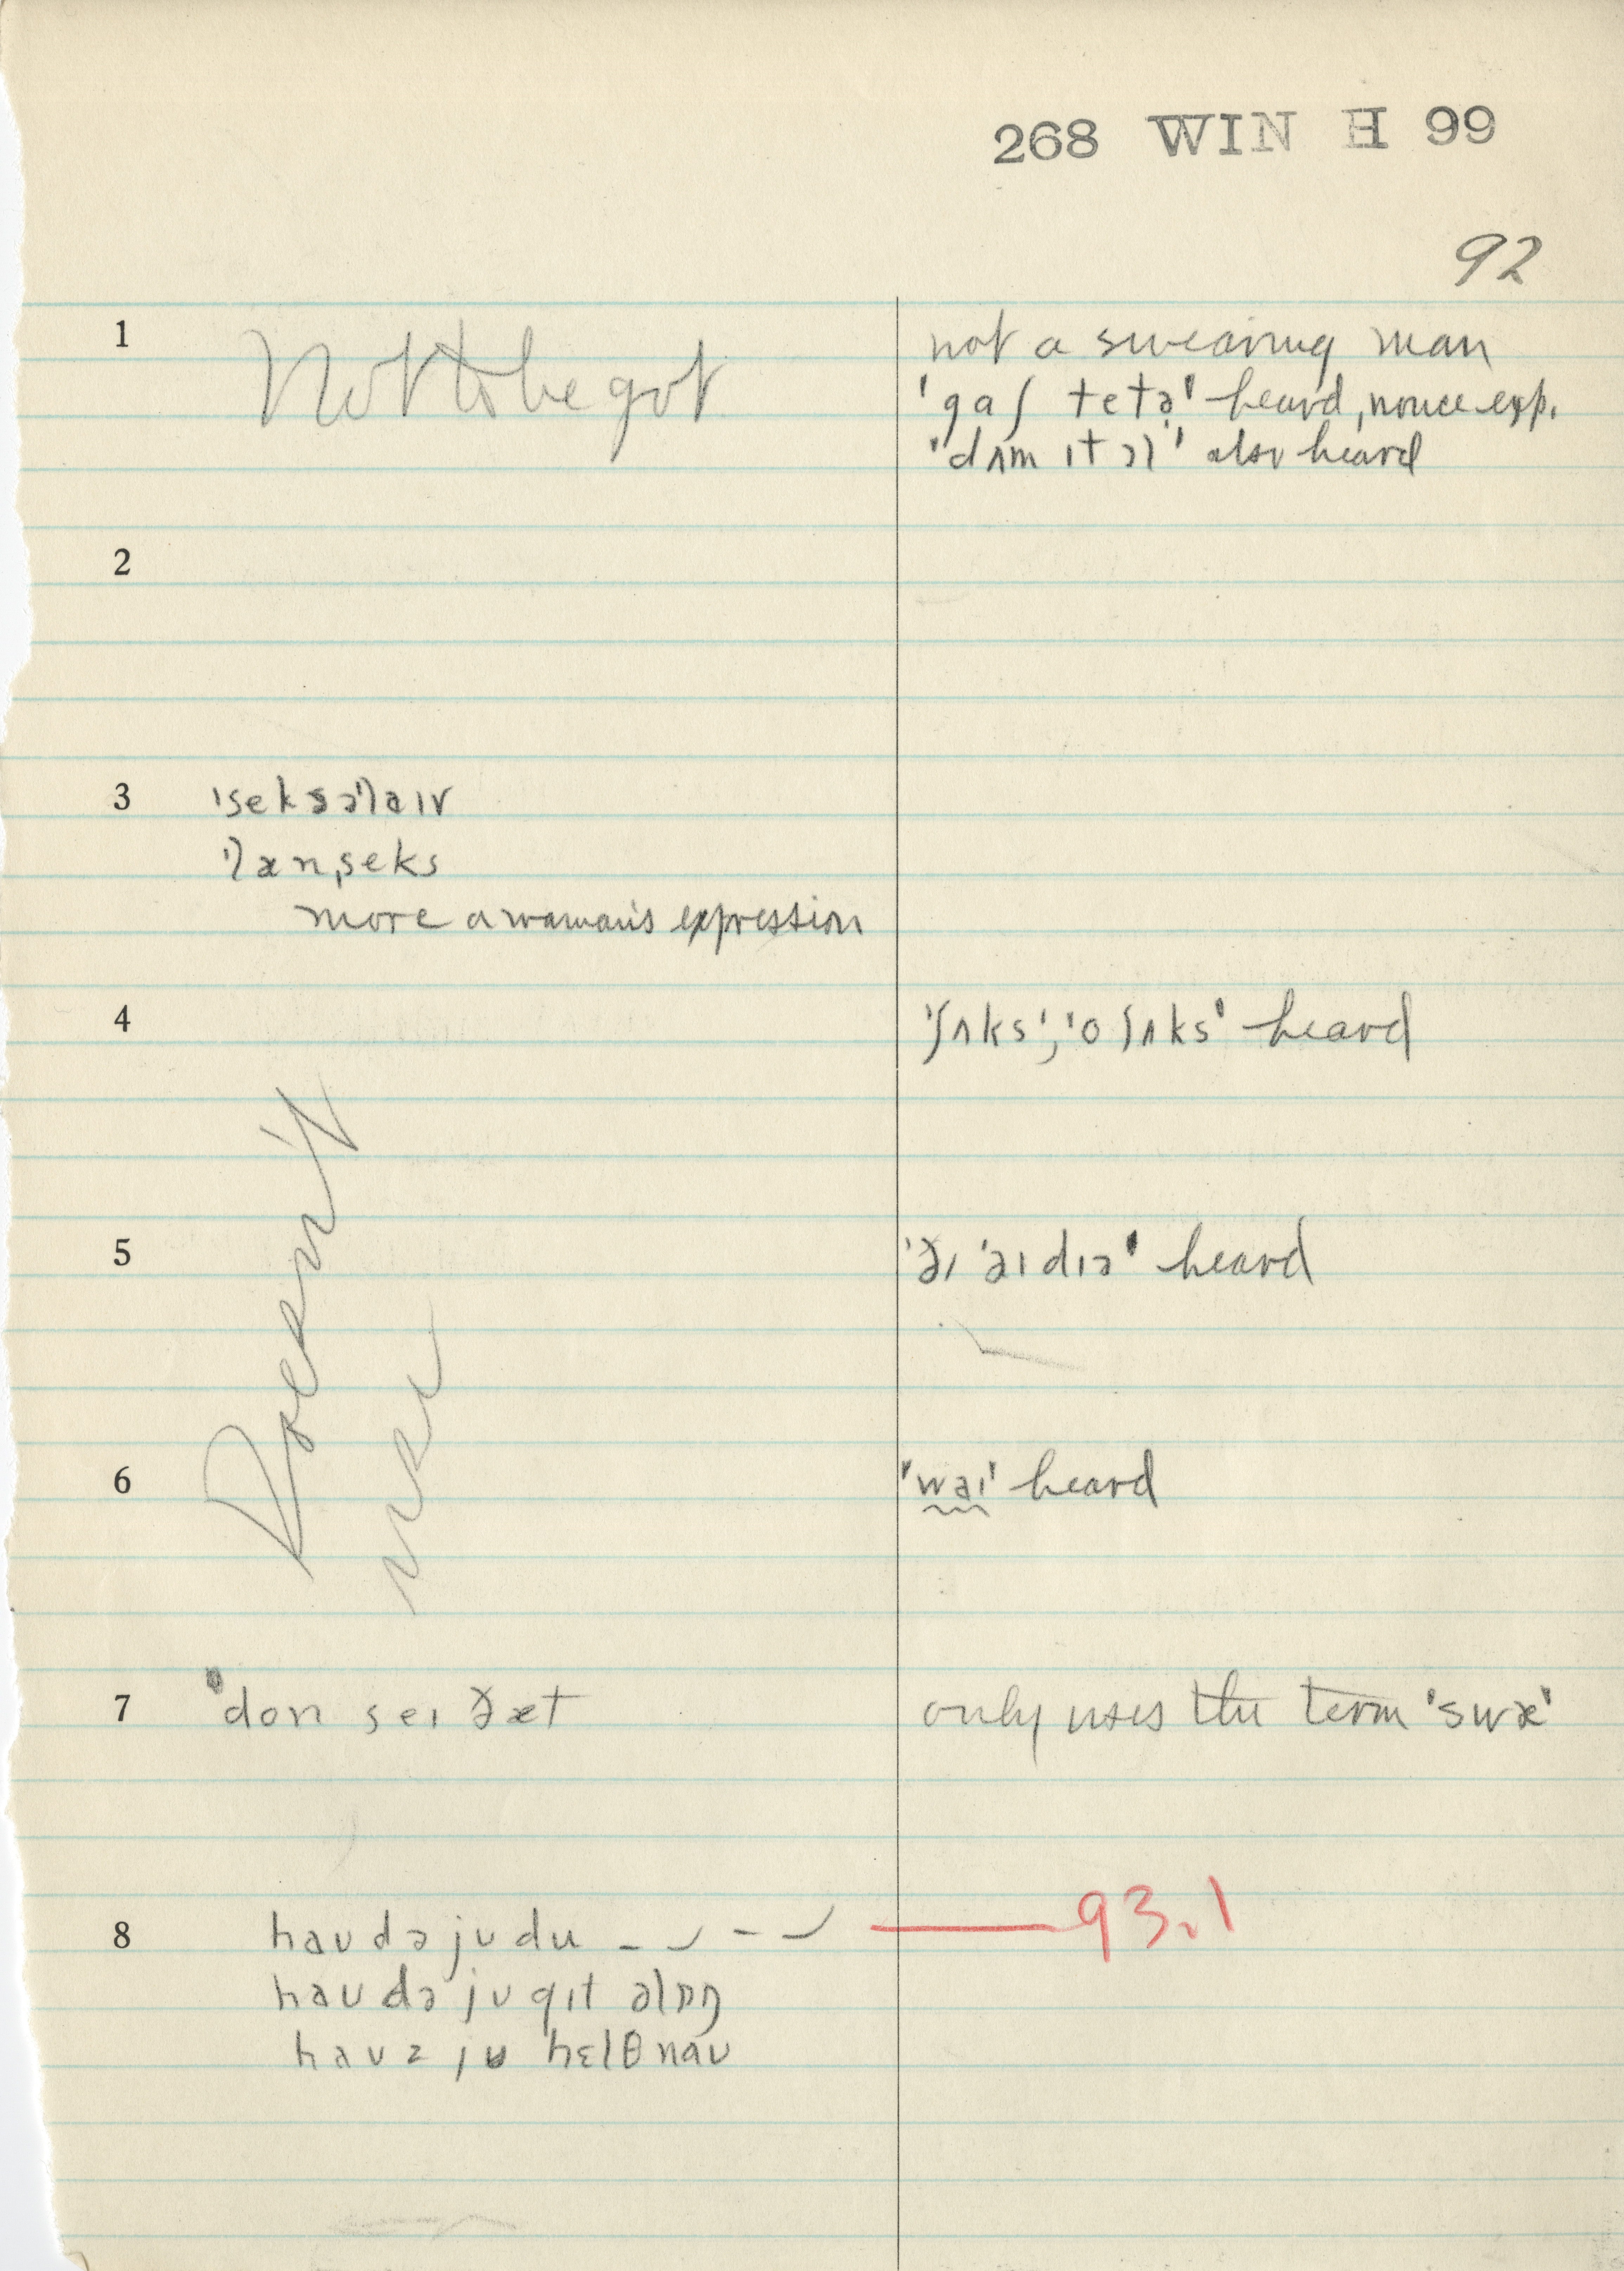 268 WIN H 99
92
1 Not to be got
not a swearing man
'gaʃ tetə' heard, nonce exp.
'dʌm ɪt ɔl' also heard
2
3 ˈseksəˈlaɪv
ˈlænˌseks
more a woman's expression
4 'ʃʌks', 'o ʃʌks' heard
Doesn't
use
5 'ðɪ ˈaɪdɪə' heard
6 'waɪ' heard
7 'don seɪ ðæt
only uses the term 'swɛ'
8 haʊ də jʊ du – ⏑ – ⏑ — 93.1
haʊ də jʊ gɪt əlɒŋ
haʊz jʊ hɛlθ naʊ